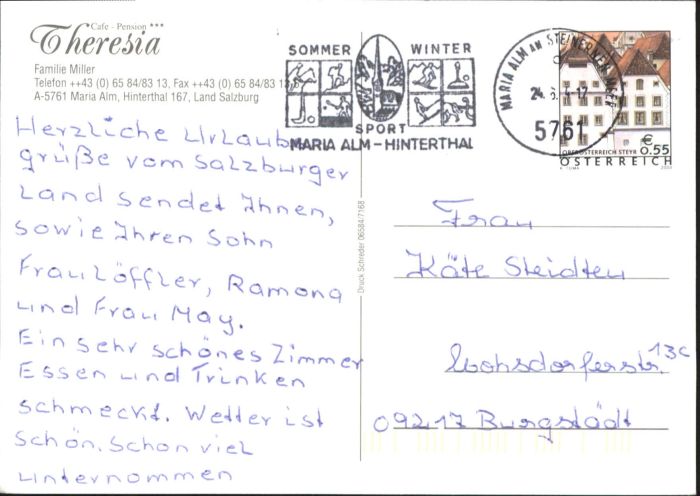 Cafe - Pension ***
Theresia
Familie Miller
Telefon ++43 (0) 65 84/83 13, Fax ++43 (0) 65 84/83 13
A-5761 Maria Alm, Hinterthal 167, Land Salzburg
SOMMER WINTER
SPORT
MARIA ALM - HINTERTHAL
MARIA ALM AM STEINERNEN MEER
5761
OBERÖSTERREICH STEYR
€ 0.55
ÖSTERREICH
Herzliche Urlaubs
grüße vom Salzburger
Land sendet Ihnen,
sowie Ihren Sohn
Frau Löffler, Ramona
und Frau May.
Ein sehr schönes Zimmer
Essen und Trinken
schmeckt. Wetter ist
schön. Schon viel
unternommen
Druck Schreder 06584/7168
Frau
Käte Steidten
Mohsdorferstr. 13c
09217 Burgstädt